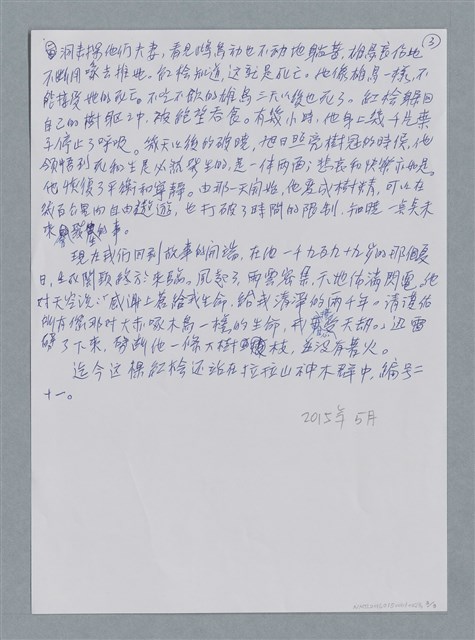 ③
洞去探他們夫妻,看見雌鳥動也不動地躺著,雄鳥哀傷地
不斷用喙去推她。紅檜知道,这就是死亡。他像雄鳥一樣,不
能接受她的死亡。不吃不飲的雄鳥三天以後也死了。紅檜縮回
自己的樹軀之中,被絕望吞食。有幾小時,他身上幾千片葉
子停止了呼吸。幾天以後的破曉,旭日照亮樹冠的時候,他
領悟到死和生是必然發生的,是一体兩面;悲哀和快樂亦如是。
他恢復了平衡和寧静。由那一天開始,他變成樹精,可以在
幾百公里內自由遨遊,也打破了時間的限制,知曉一点点未
來發生的事。
現在我們回到故事的開端,在他一千九百九十九岁的那個夏
日,生死關頭終於來臨。風起了,雨雲密集,天地佈滿閃電。他
对天宮說:「感謝上蒼給我生命,給我清淨的两千年。清護佑
所有像那对大赤啄木鳥一樣的生命,我受天劫。」迅雷
劈了下來,劈斷他一條大樹枝,並沒有著火。
迄今这棵紅檜还站在拉拉山神木群中,編号二
十一。
2015年5月